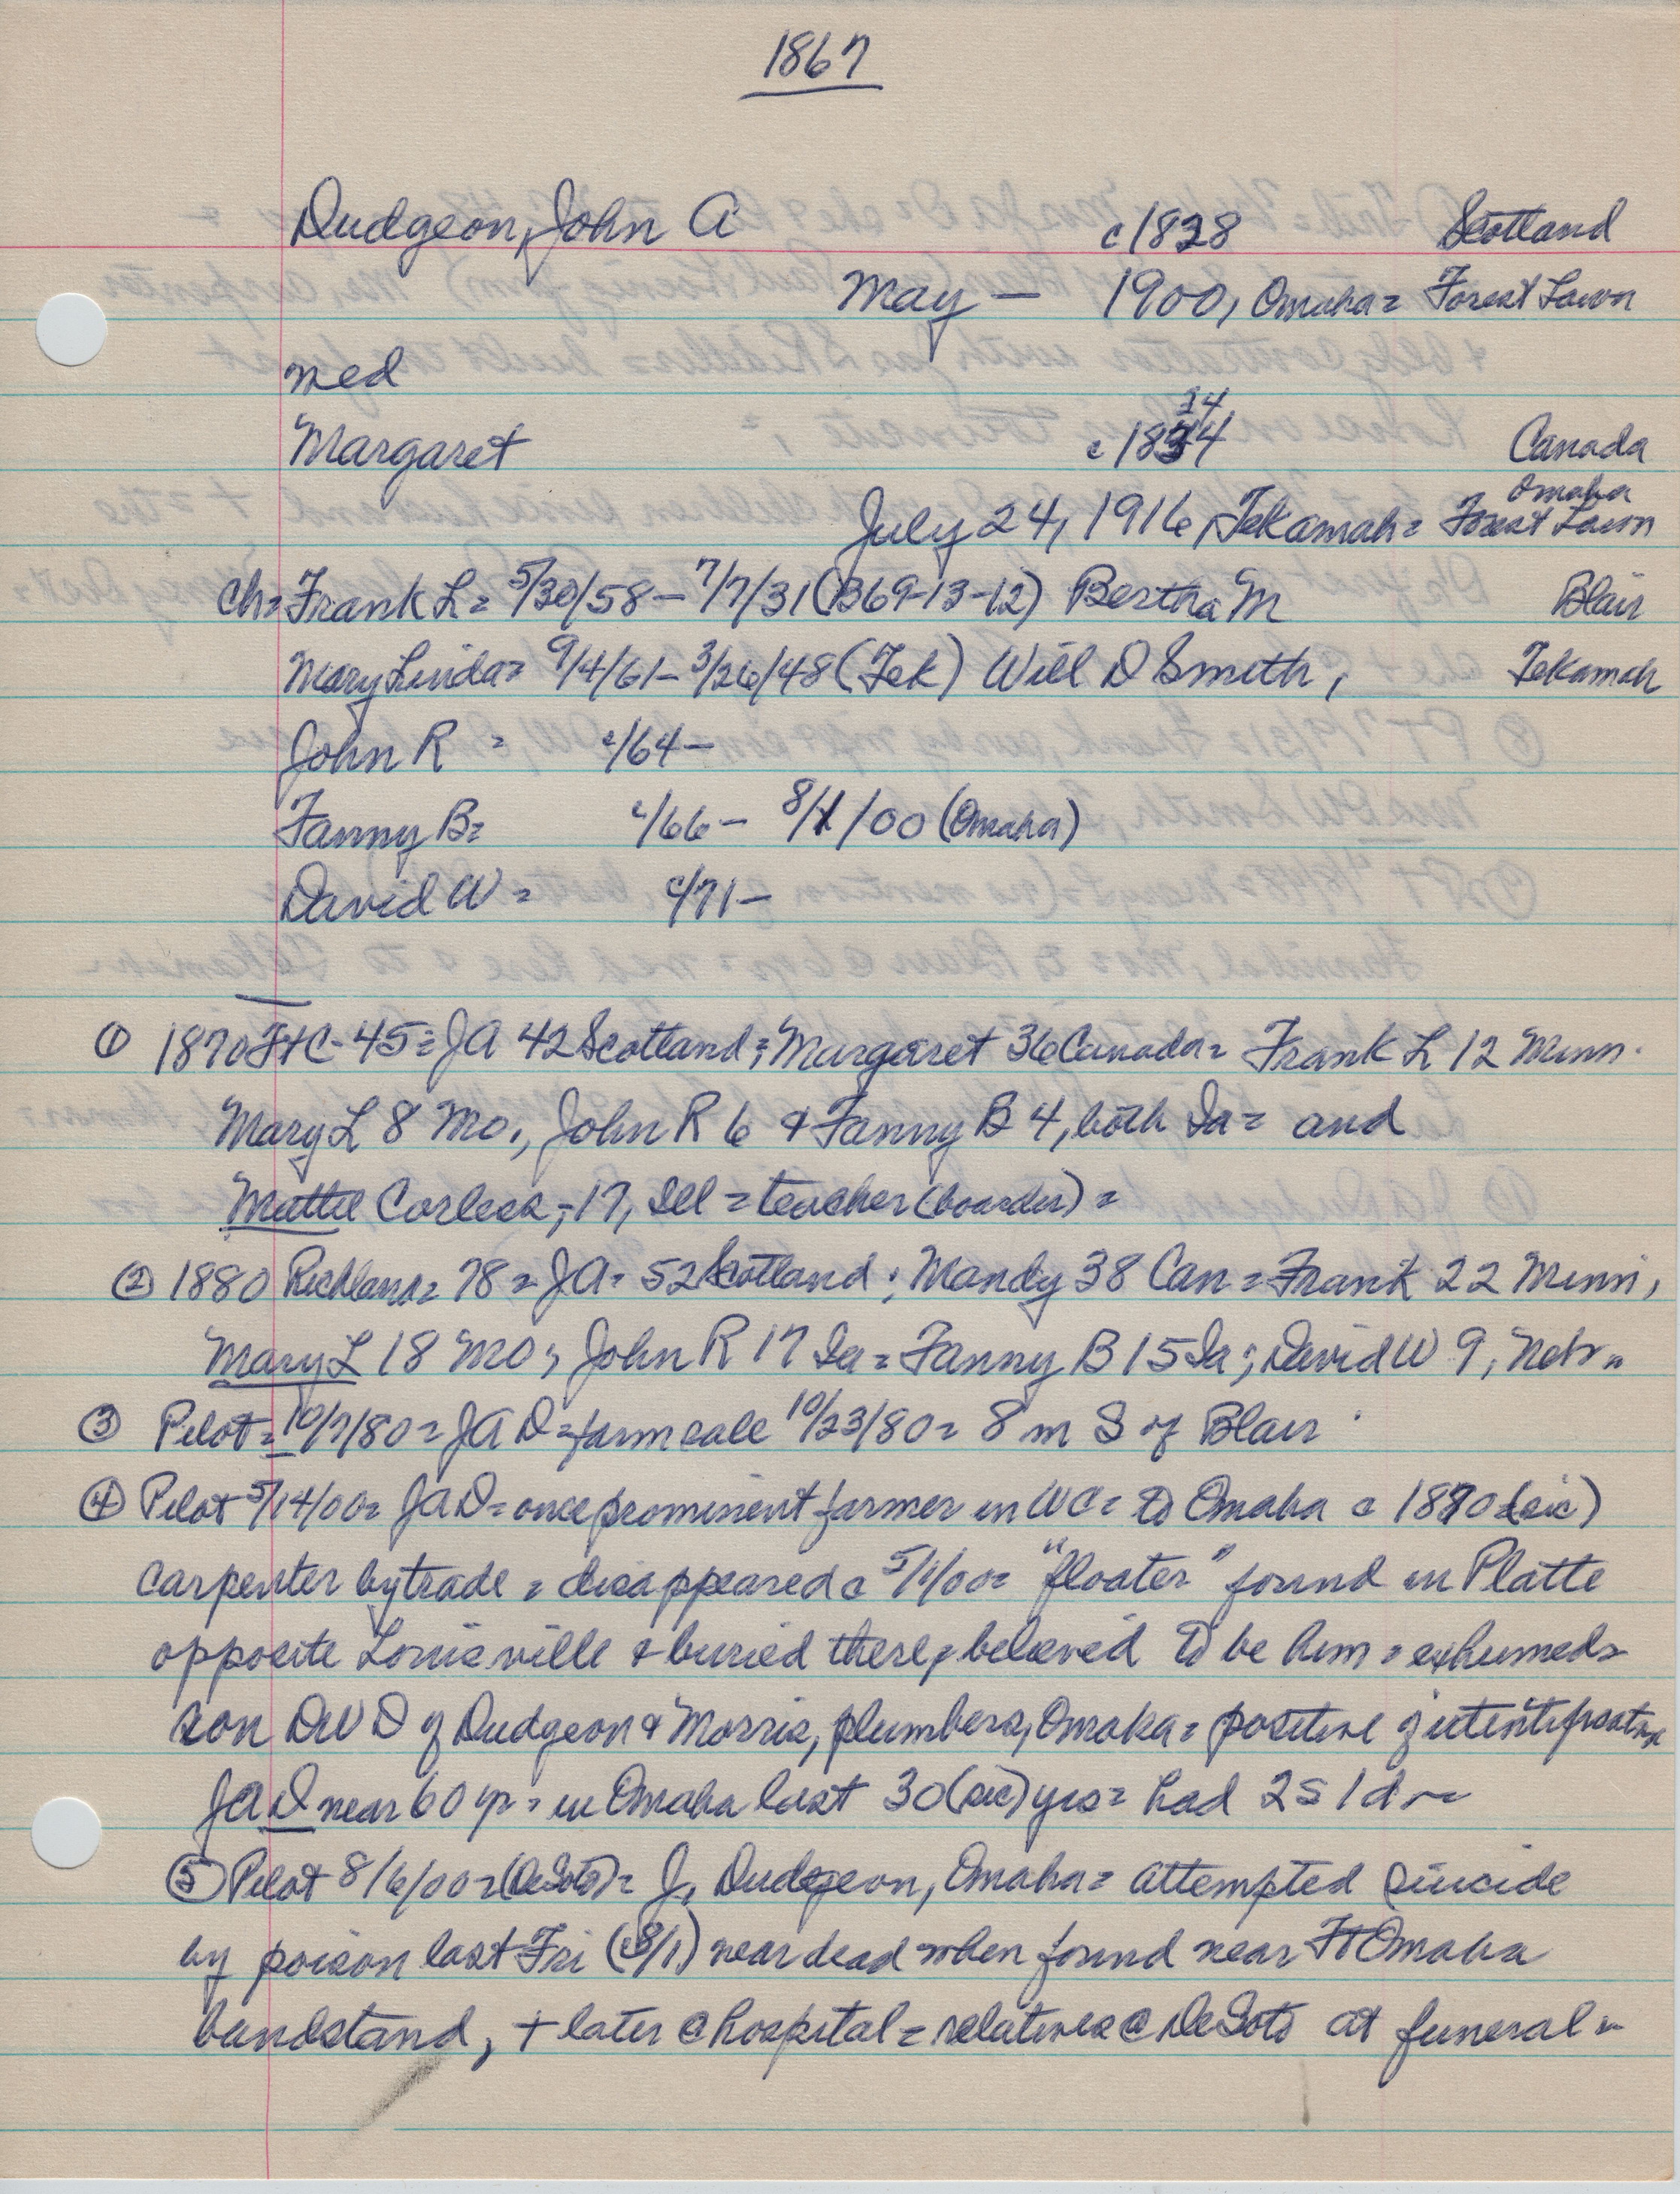 1867
Dudgeon, John A c1828 Scotland
May — 1900, Omaha = Forest Lawn
med
Margaret c1834 34 Canada
July 24, 1916, Tekamah = Omaha Forest Lawn
Ch = Frank L = 5/30/58 — 7/7/31 (B69-13-12) Bertha M Blair
Mary Linda = 9/4/61 — 3/26/48 (Tek) Will D Smith, Tekamah
John R = c/64 —
Fanny B = c/66 — 8/1/00 (Omaha)
David W = c/71 —
① 1870 FtC - 45 = JA 42 Scotland; Margaret 36 Canada = Frank L 12 Minn.
Mary L 8 Mo., John R 6 & Fanny B 4, both Ia = and
Mattie Corless, - 17, Ill = teacher (boarder) =
② 1880 Richland = 78 = JA = 52 Scotland; Mandy 38 Can = Frank 22 Minn,
Mary L 18 Mo; John R 17 Ia = Fanny B 15 Ia; David W 9, Nebr =
③ Pilot = 10/7/80 = JAD = farm sale 10/23/80 = 8 m S of Blair
④ Pilot 5/14/00 = JAD = once prominent farmer in WC = to Omaha c 1870 (sic)
carpenter by trade = disappeared c 5/1/00 = "floater" found in Platte
opposite Louisville & buried there, believed to be him = exhumed =
son DWD of Dudgeon & Morris, plumbers, Omaha = positive of
JAD near 60 yr = in Omaha last 30 (sic) yrs = had 2s 1d ~
⑤ Pilot 8/6/00 = (DeSoto) = J. Dudgeon, Omaha = attempted suicide
by poison last Fri (8/1) near dead when found near Ft Omaha
bandstand, + later @ hospital = relatives @ DeSoto at funeral =